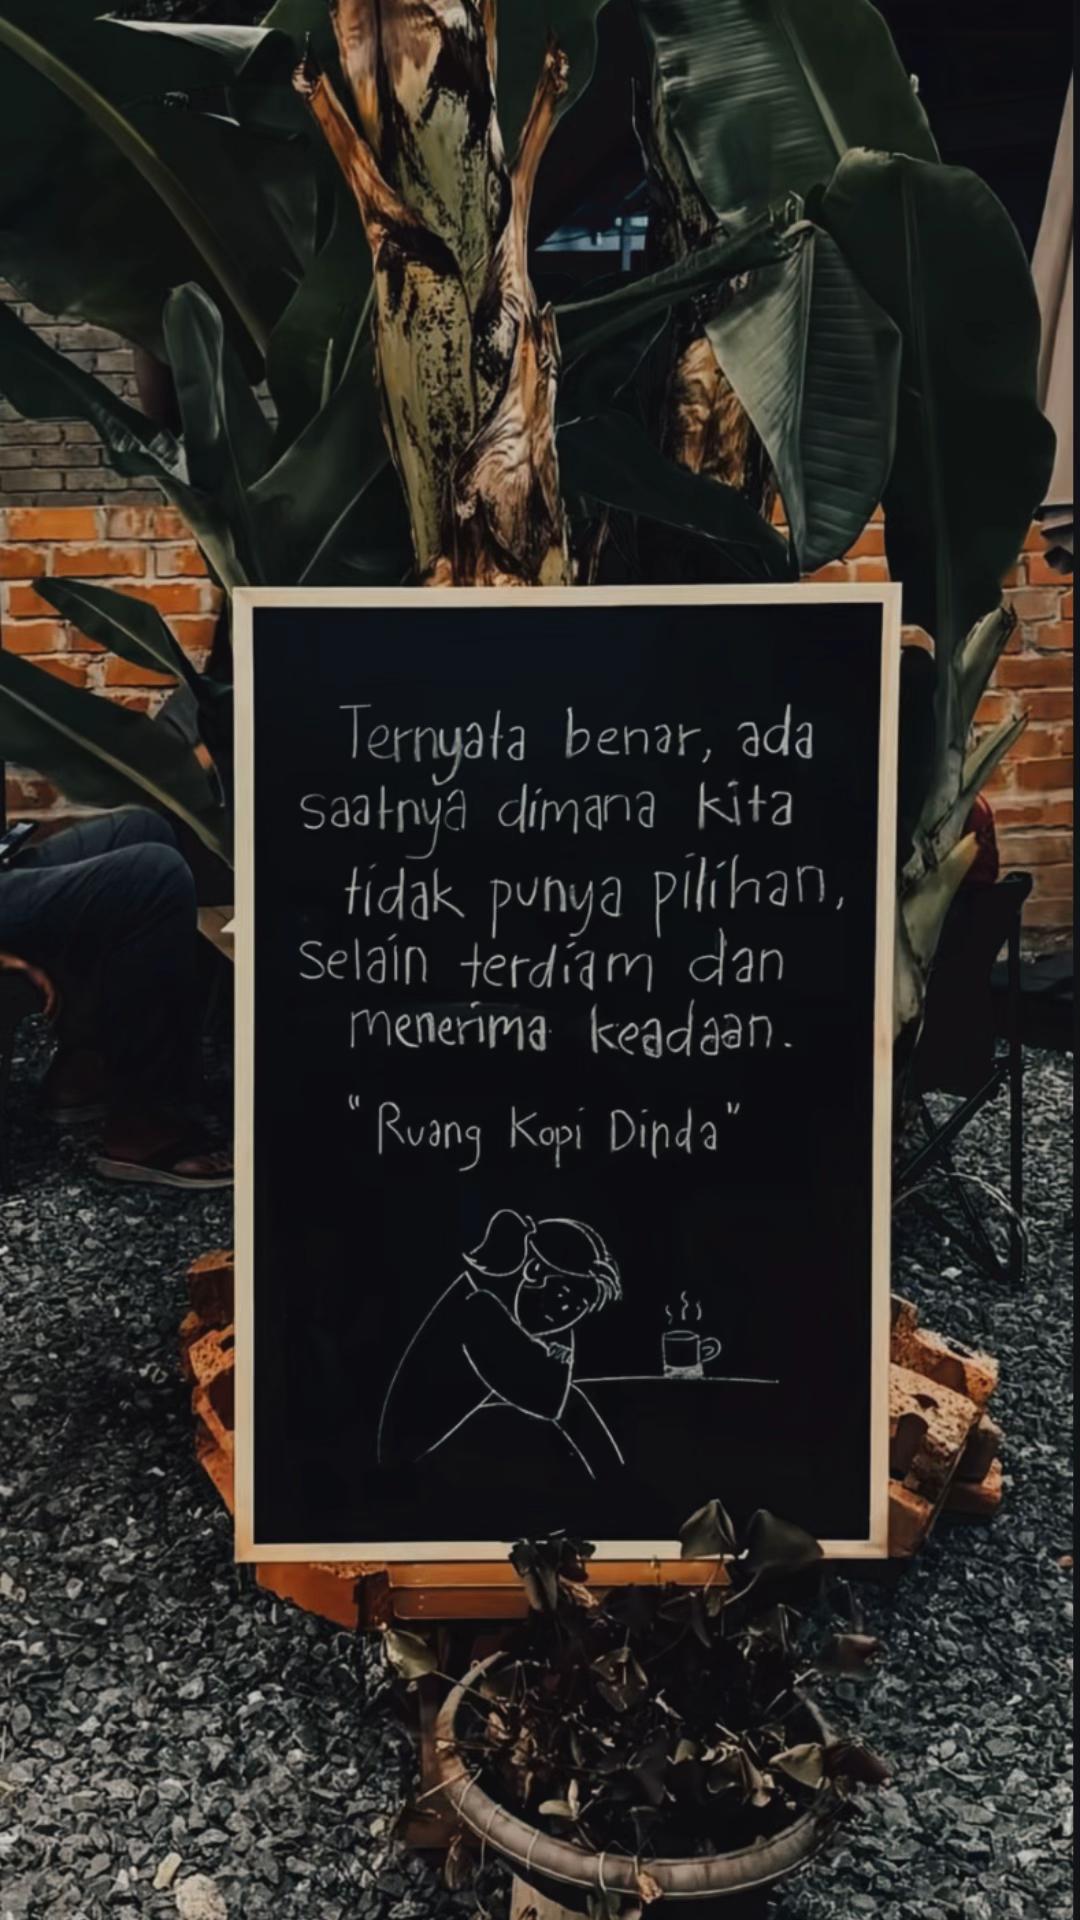 Ternyata benar, ada
saatnya dimana kita
tidak punya pilihan,
Selain terdiam dan
menerima keadaan.
"Ruang Kopi Dinda"